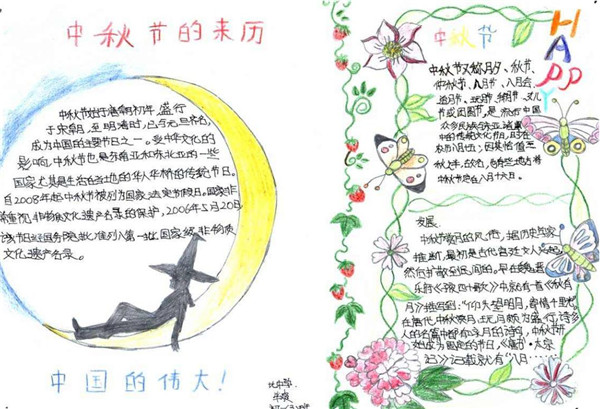 中秋节的来历
中秋节始于唐朝初年,盛行
于宋朝,至明清时,已与元旦齐名,
成为中国的主要节日之一。受中华文化的
影响,中秋节也是东南亚和东北亚的一些
国家尤其是生活在当地的华人华侨的传统节日。
自2008年起中秋节被列为国家法定节假日。国家非
常重视非物质文化遗产名录的保护,2006年5月20日
该节日经国务院批准列入第一批国家级非物质
文化遗产名录。
中国的伟大!
中秋节
HAPPY
中秋节又称月夕、秋节、
仲秋节、八月节、八月会、
追月节、玩月节、拜月节、女儿节
或团圆节,是流行于中国
众多民族与东亚诸国
中的传统文化节日,时在
农历八月十五;因其恰值三
秋之半,故名,也有些地方将
中秋节定在八月十六日。
发展:
中秋节赏月的风俗,据历史学家
推断,最初是古代宫廷文人兴起,
然后扩散至民间的。早在魏晋
乐府《子夜四十歌》中就有一首《秋有
月》描写到:“仰头望明月,寄情千里光”。
在唐代,中秋赏月、玩月颇为盛行,许多
人的名篇中都有咏月的诗句,中秋节开
始成为固定的节日,《唐书·太宗
记》记载就有“八月……